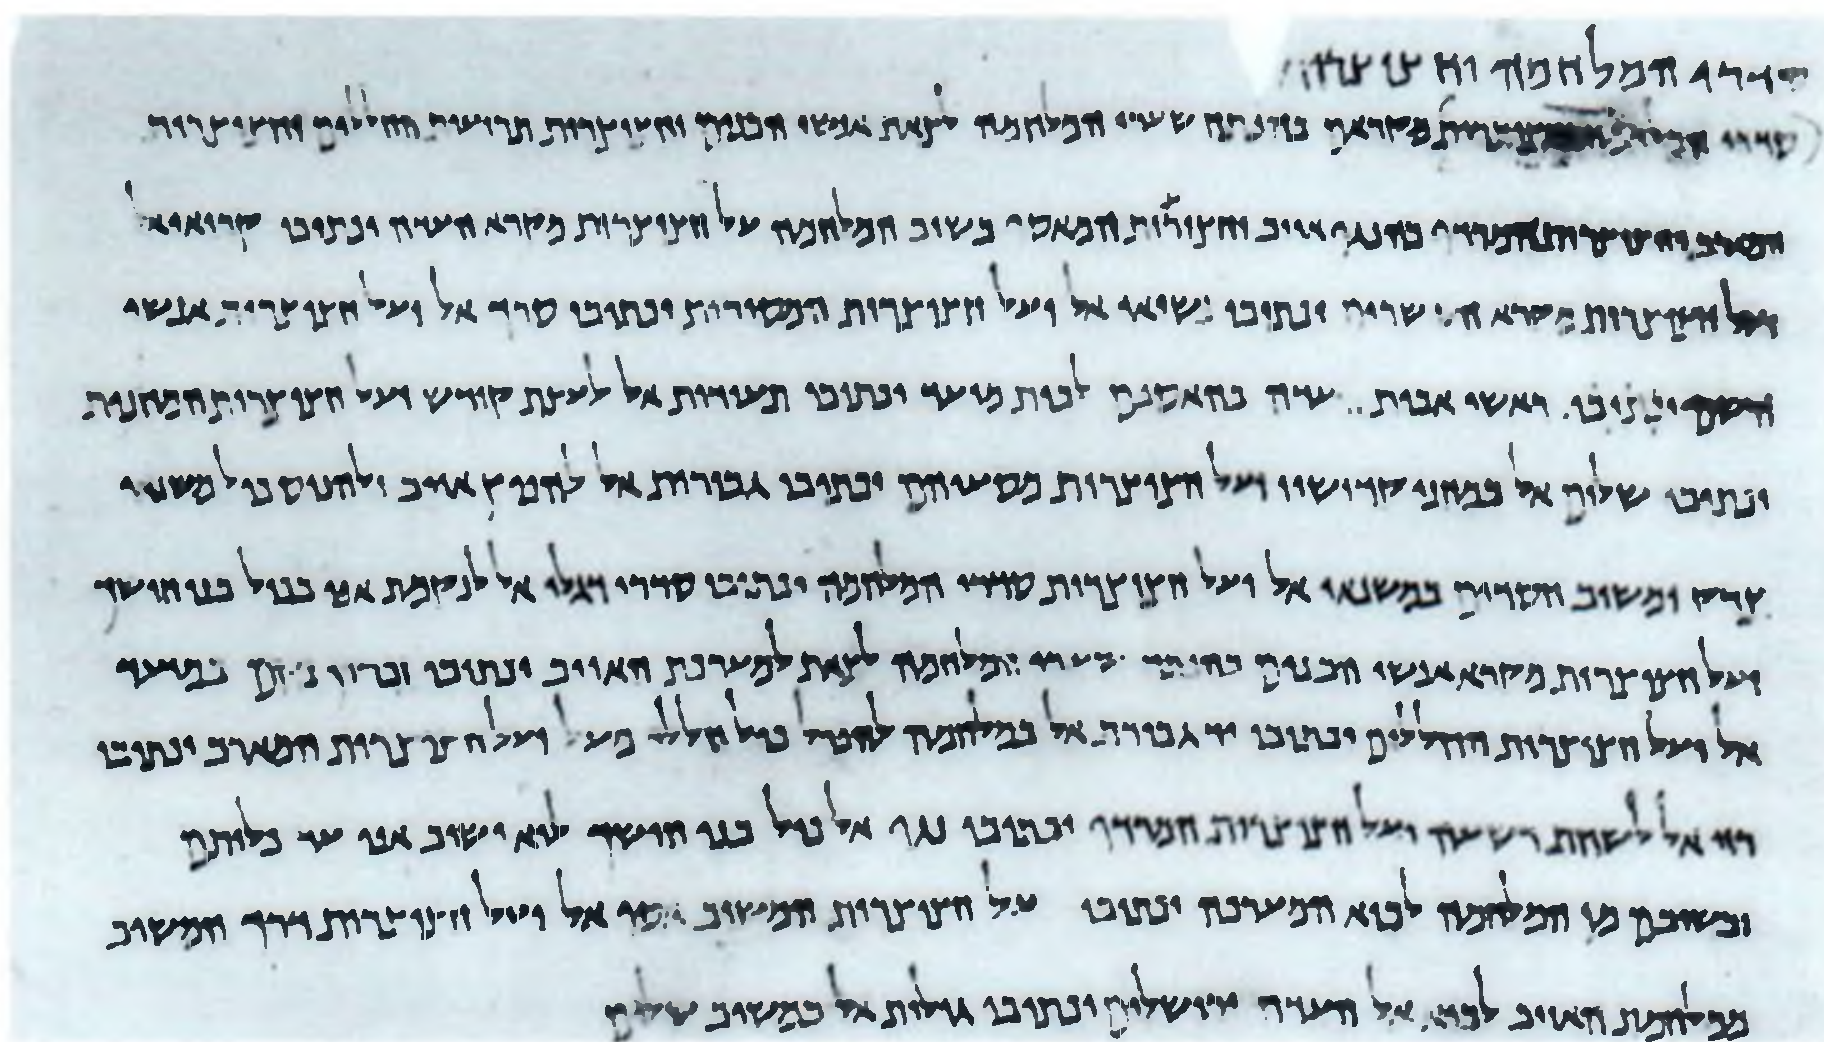 המלחמה
סדרי מקראם בהפתח שערי המלחמה לצאת אנשי הבנים וחצוצרות תרועות החללים וחצוצרות
המארב וחצוצרות המרדף בהנגף אויב וחצוצרות המאסף בשוב המלחמה על חצוצרות מקרא העדה יכתובו קרואי אל
ועל חצוצרות מקרא השרים יכתובו נשיאי אל ועל חצוצרות המסורות יכתובו סרך אל ועל חצוצרות אנשי
השם יכתובו ראשי אבות העדה בהאספם לבית מועד יכתובו תעודות אל לעצת קודש ועל חצוצרות המחנות
יכתובו שלום אל במחני קדושיו ועל חצוצרות מסעיהם יכתובו גבורות אל להפיץ אויב ולהניס כול משנאי
צדק ומשוב חסדים במשנאי אל ועל חצוצרות סדרי המלחמה יכתובו סדרי דגלי אל לנקמת אפו בכול בני חושך
ועל חצוצרות מקרא אנשי הבנים בהפתח שערי המלחמה לצאת למערכת האויב יכתובו זכרון נקם במועד
אל ועל חצוצרות החללים יכתובו יד גבורת אל במלחמה להפיל כול חללי מעל ועל חצוצרות המארב יכתובו
רזי אל לשחת רשעה ועל חצוצרות המרדף יכתובו נגף אל כול בני חושך לוא ישיב אפו עד כלותם
ובשובם מן המלחמה לבוא המערכה יכתובו על חצוצרות המשוב אסף אל ועל חצוצרות דרך המשוב
ממלחמת האויב לבוא אל העדה ירושלים יכתובו גילות אל במשוב שלום